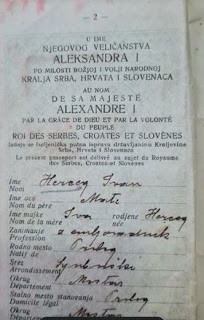 — 2 —
U IME
NJEGOVOG VELIČANSTVA
ALEKSANDRA I
PO MILOSTI BOŽJOJ I VOLJI NARODNOJ
KRALJA SRBA, HRVATA I SLOVENACA
AU NOM
DE SA MAJESTÉ
ALEXANDRE I
PAR LA GRÂCE DE DIEU ET PAR LA VOLONTÉ
DU PEUPLE
ROI DES SERBES, CROATES ET SLOVÈNES
Izdaje se iseljenička putna isprava državljaninu Kraljevine
Srba, Hrvata i Slovenaca
Le present passeport est délivré au sujet du Royaume
des Serbes, Croates et Slovènes
Ime Herceg Ivan
Nom
Ime oca Mate
Ime majke Iva rodjene Herceg
Nom de la mère née
Zanimanje
Profession
Rodno mesto
Natif de
Srez
Arrondissement
Okrug Mostar
Département
Stalno mesto stanovanja
Domicile légal
Okrug Mostar